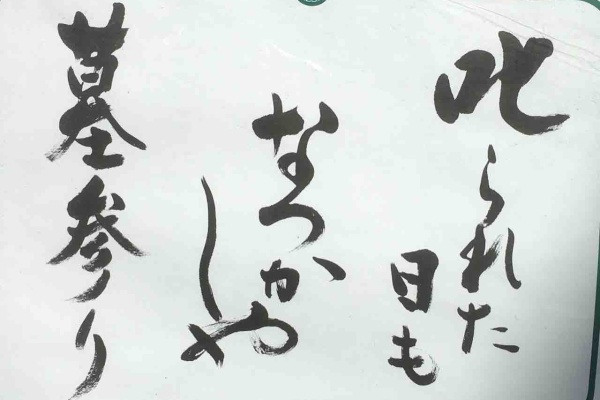 叱られた
日も
なつか
しや
墓参り